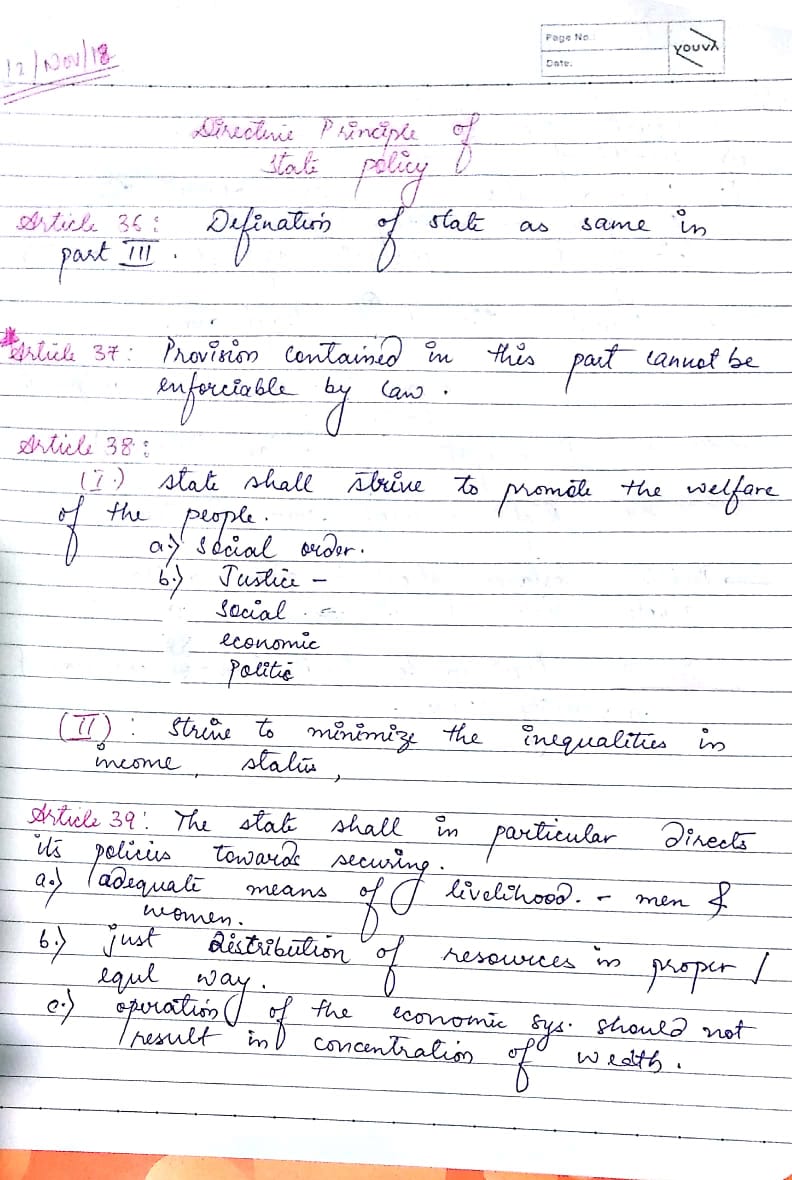 Page No.:
Date:
YOUVA
12/Nov/18
Directive Principle of
state policy
Article 36: Defination of state as same in
part III.
*Article 37: Provision contained in this part cannot be
enforciable by law.
Article 38:
(I.) state shall strive to promote the welfare
of the people.
a.) social order.
b.) Justice -
social -
economic
politic
(II): Strive to minimize the inequalities in
income, status,
Article 39: The state shall in particular directs
its policies towards securing.
a.) adequate means of livelihood. - men &
women.
b.) just distribution of resources in proper /
equl way.
c.) operation of the economic sys. should not
result in concentration of wealth.